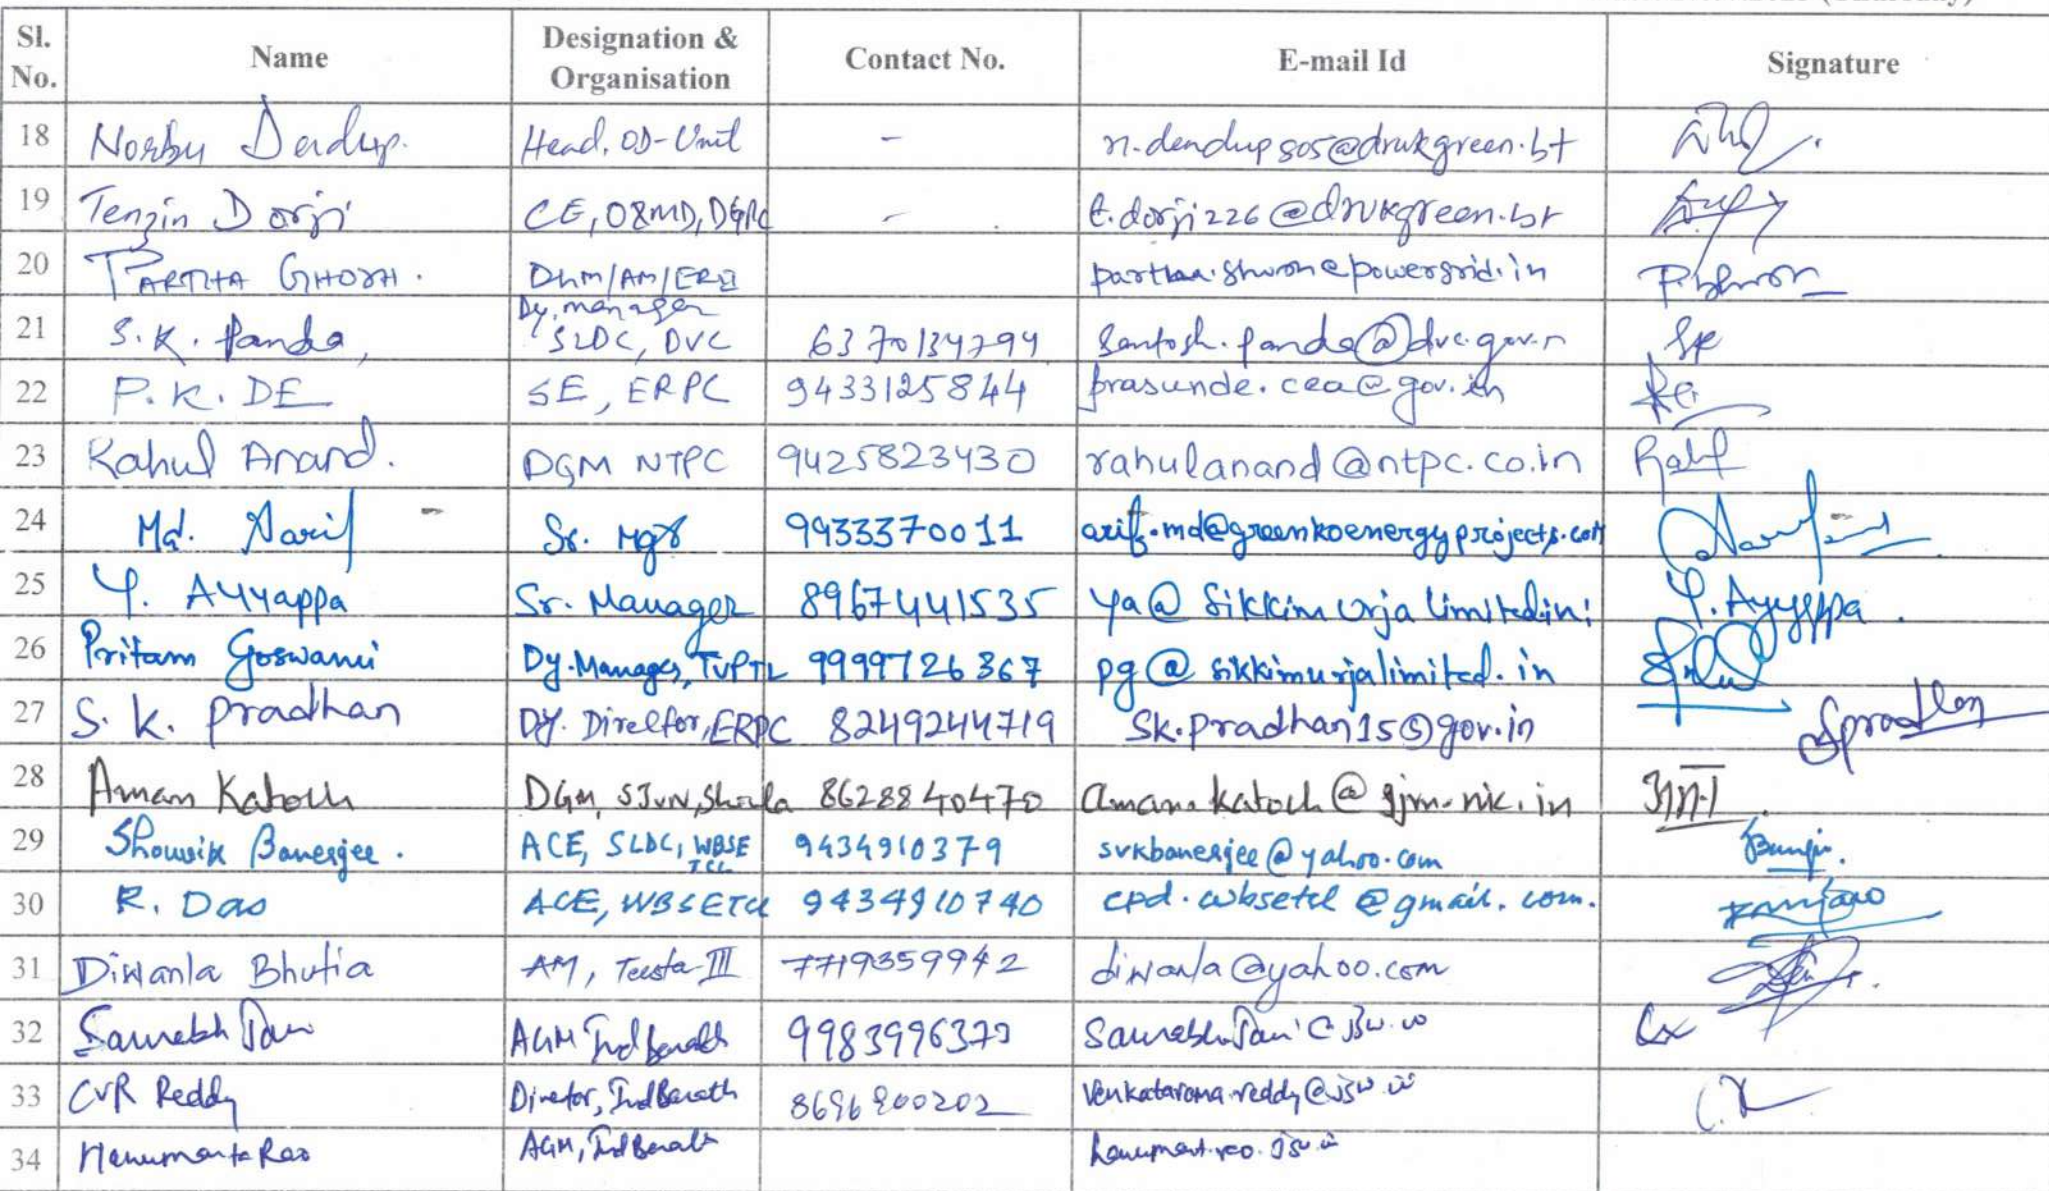 Sl. No. Name Designation & Organisation Contact No. E-mail Id Signature
18 Norbu Dendup. Head, OD-Unit - n.dendup505@drukgreen.bt
19 Tenzin Dorji CE, O&MD, DGPC - t.dorji226@drukgreen.bt
20 PARTHA GHOSH. DGM/AM/ERII partha.ghosh@powergrid.in
21 S.K. Panda, Dy. manager SLDC, DVC 6370134794 Santosh.panda@dvc.gov.n SP
22 P.K. DE SE, ERPC 9433125844 prasunde.cea@gov.in
23 Rahul Anand. DGM NTPC 9425823430 rahulanand@ntpc.co.in
24 Md. Aarif - Sr. Mgr 9933370011 arif.md@greenkoenergyprojects.com
25 Y. Ayyappa Sr. Manager 8967441535 ya@Sikkimurjalimited.in Y. Ayyappa.
26 Pritam Goswami Dy. Manager, TVPTL 9999726367 pg@sikkimurjalimited.in
27 S. K. Pradhan Dy. Director, ERPC 8249244719 Sk.pradhan15@gov.in Spradhan
28 Aman Katoch DGM, SJVN, Shimla 8628840470 aman.katoch@sjvn.nic.in
29 Showvik Banerjee. ACE, SLDC, WBSE TCL 9434910379 svkbanerjee@yahoo.com
30 R. Das ACE, WBSETCL 9434910740 cpd.wbsetcl@gmail.com.
31 Diwanla Bhutia AM, Teesta-III 7719359942 diwanla@yahoo.com
32 Saurabh AGM Ind Barath
33 CVR Reddy Director, Ind Barath 8696900202 Venkatarama.reddy@jsw.in
34 Hanumanta Rao AGM, Ind Barath